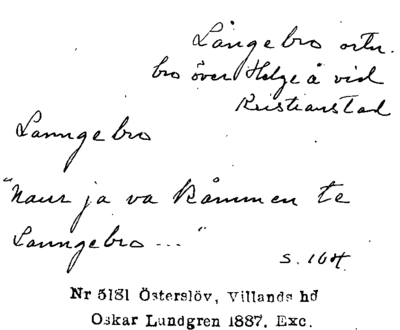 Långebro ortn.
bro över Helge å vid
Kristianstad
Lanngebro
"Naur ja va kåmmen te
Lanngebro ..."
s. 104.
Nr 5181 Österslöv, Villands hd
Oskar Lundgren 1887. Exc.